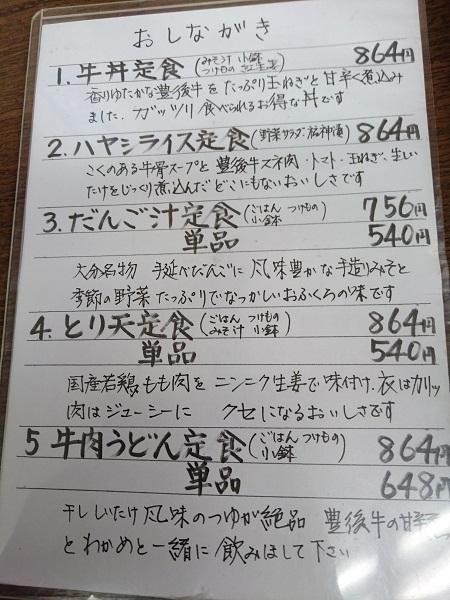 おしながき
1. 牛丼定食(みそ汁 小鉢 つけもの 紅生姜) 864円
香りゆたかな豊後牛をたっぷり玉ねぎと甘辛く煮込み
ました. ガッツリ食べられるお得な丼です
2. ハヤシライス定食(野菜サラダ・福神漬) 864円
こくのある牛骨スープと豊後牛スネ肉・トマト・玉ねぎ、生しい
たけをじっくり煮込んだどこにもないおいしさです
3. だんご汁定食(ごはん つけもの 小鉢) 756円
単品 540円
大分名物 手延べだんごに風味豊かな手造りみそと
季節の野菜たっぷりでなつかしいおふくろの味です
4. とり天定食(ごはん つけもの みそ汁 小鉢) 864円
単品 540円
国産若鶏もも肉をニンニク生姜で味付け. 衣はカリッ
肉はジューシーに クセになるおいしさです
5 牛肉うどん定食(ごはん つけもの 小鉢) 864円
単品 648円
干しいたけ風味のつゆが絶品 豊後牛の甘
とわかめと一緒に飲みほして下さい